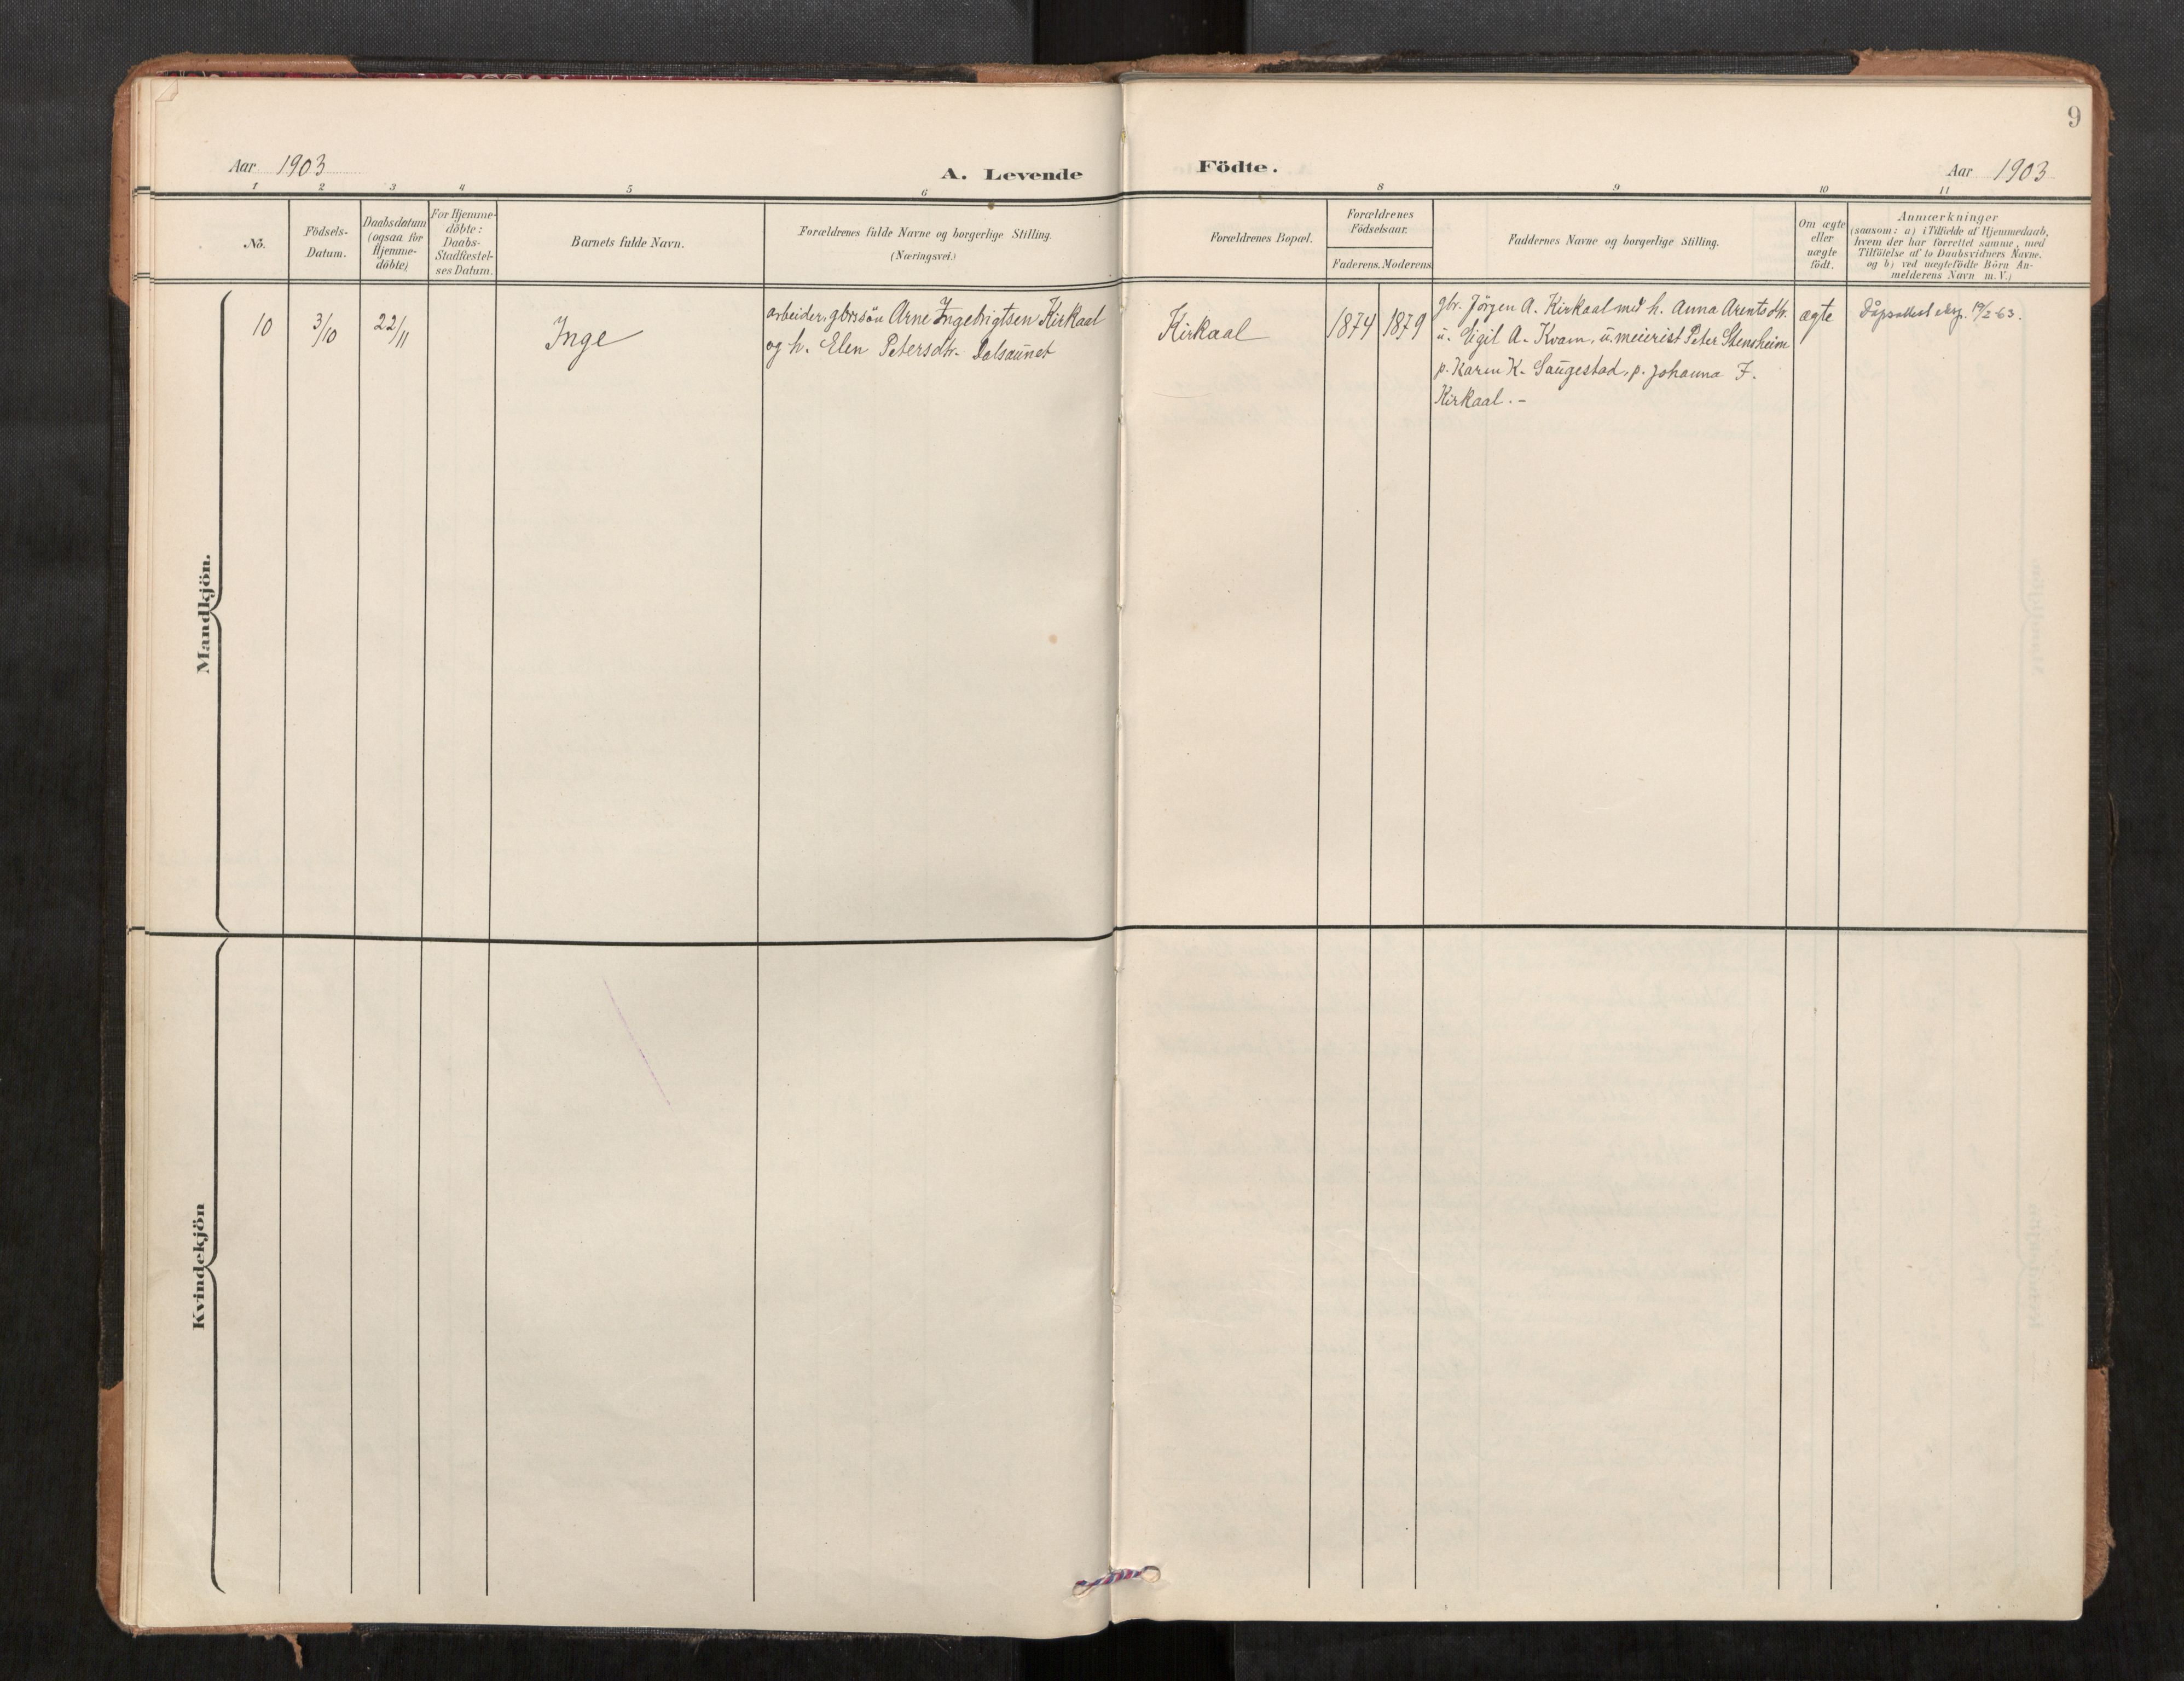 9
Aar 1903
A. Levende Födte.
Aar 1903
1 2 3 4 5 6 8 9 10 11
No.
Födsels-
Datum.
Daabsdatum
(ogsaa for
Hjemme-
döbte)
For Hjemme-
döbte:
Daabs-
Stadfæstel-
ses Datum.
Barnets fulde Navn.
Forældrenes fulde Navne og borgerlige Stilling.
(Næringsvei.)
Forældrenes Bopæl.
Forældrenes
Födselsaar.
Faderens. Moderens.
Faddernes Navne og borgerlige Stilling.
Om ægte
eller
uægte
födt.
Anmærkninger
(saasom: a) i Tilfælde af Hjemmedaab,
hvem der har forrettet samme, med
Tilföielse af to Daabsvidners Navne.
og b) ved uægtefödte Börn An-
melderens Navn m. V.)
Mandkjön.
10
3/10
22/11
Inge
arbeider, gbrsön Arne Ingebrigtsen Kirkaal
og h. Elen Petersdtr. Dalsaunet
Kirkaal
1874
1879
gbr. Jörgen A. Kirkaal med h. Anna Arentsdtr.
u. Eigil A. Kvam, u. meierist Peter Stensheim
p. Karen K. Saugestad, p. Johanna I.
Kirkaal. -
ægte
Dåpsattest 19/2-63.
Kvindekjön